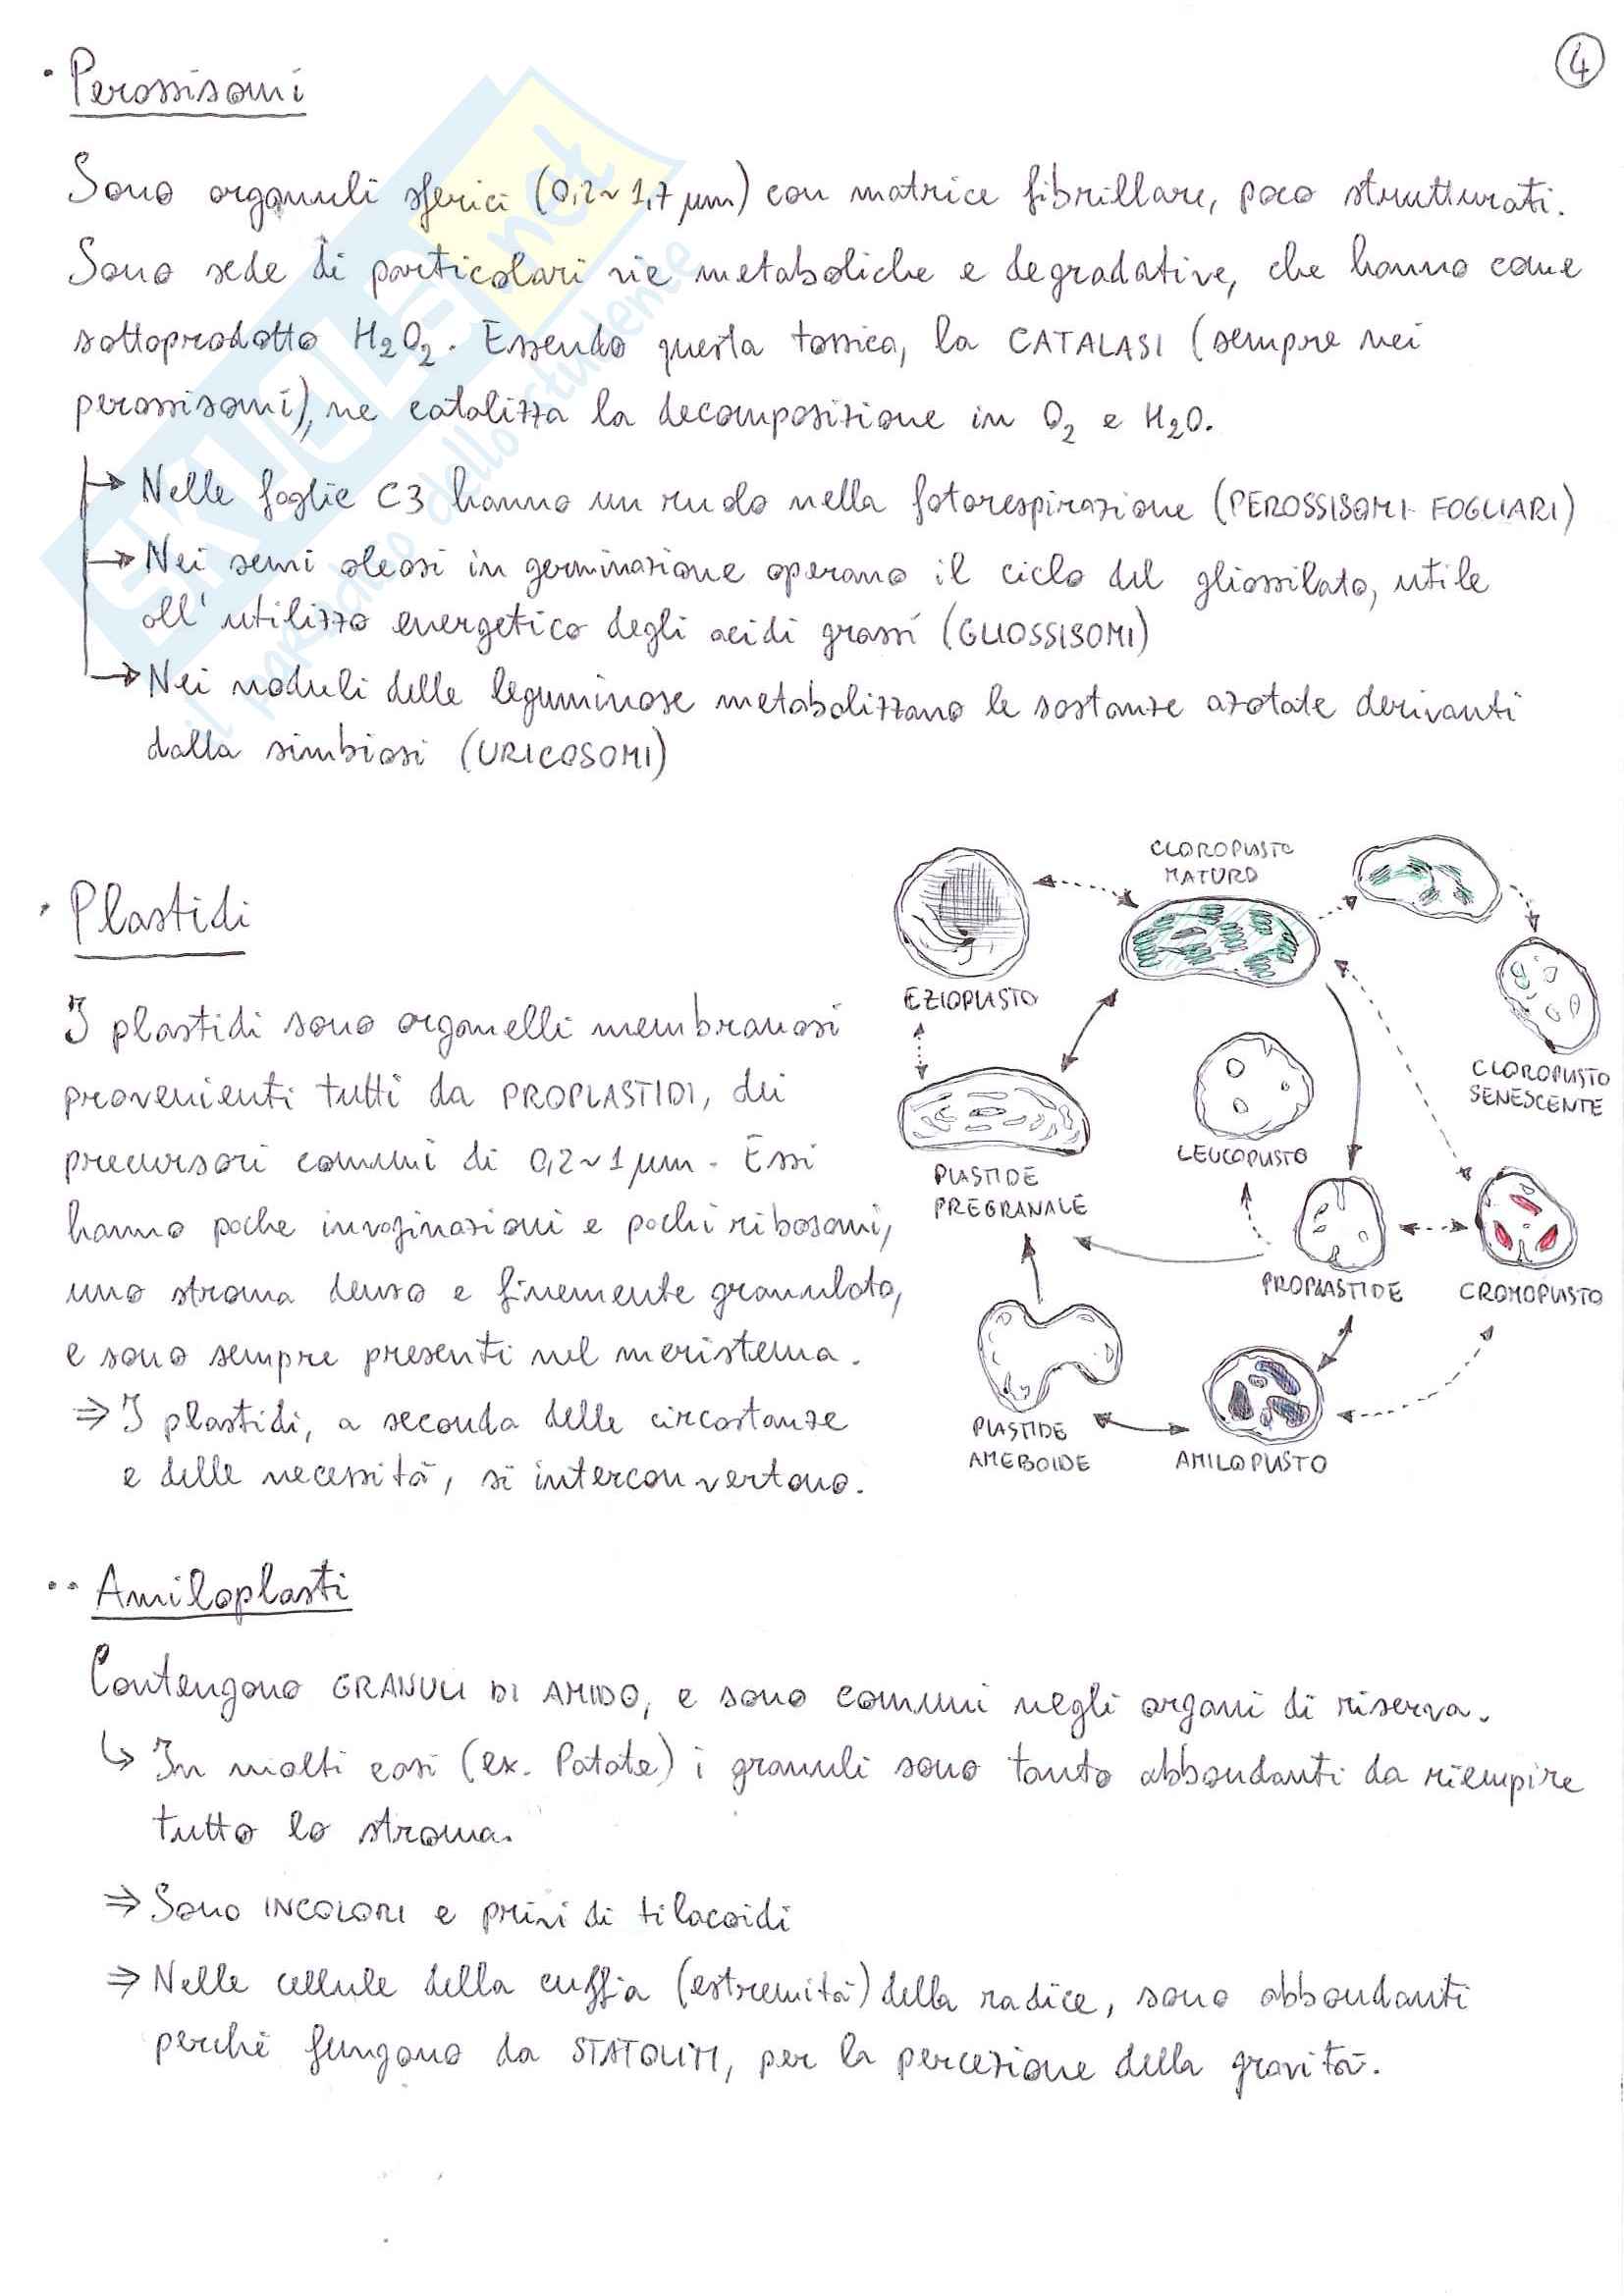 4
· Perossisomi
Sono organuli sferici (0,2~1,7 µm) con matrice fibrillare, poco strutturati.
Sono sede di particolari vie metaboliche e degradative, che hanno come
sottoprodotto H₂O₂. Essendo questa tossica, la CATALASI (sempre nei
perossisomi), ne catalizza la decomposizione in O₂ e H₂O.
→ Nelle foglie C3 hanno un ruolo nella fotorespirazione (PEROSSISOMI FOGLIARI)
→ Nei semi oleosi in germinazione operano il ciclo del gliossilato, utile
all'utilizzo energetico degli acidi grassi (GLIOSSISOMI)
→ Nei noduli delle leguminose metabolizzano le sostanze azotate derivanti
dalla simbiosi (URICOSOMI)
· Plastidi
I plastidi sono organelli membranosi
provenienti tutti da PROPLASTIDI, dei
precursori comuni di 0,2~1 µm. Essi
hanno poche invaginazioni e pochi ribosomi,
uno stroma denso e finemente granulato,
e sono sempre presenti nel meristema.
⇒ I plastidi, a seconda delle circostanze
e delle necessità, si interconvertono.
CLOROPLASTO
MATURO
EZIOPLASTO
CLOROPLASTO
SENESCENTE
LEUCOPLASTO
PLASTIDE
PREGRANALE
PROPLASTIDE
CROMOPLASTO
PLASTIDE
AMEBOIDE
AMILOPLASTO
·· Amiloplasti
Contengono GRANULI DI AMIDO, e sono comuni negli organi di riserva.
↳ In molti casi (ex. Patate) i granuli sono tanto abbondanti da riempire
tutto lo stroma.
⇒ Sono INCOLORI e privi di tilacoidi
⇒ Nelle cellule della cuffia (estremità) della radice, sono abbondanti
perché fungono da STATOLITI, per la percezione della gravità.
SKUOLA.net
il paradiso dello studente